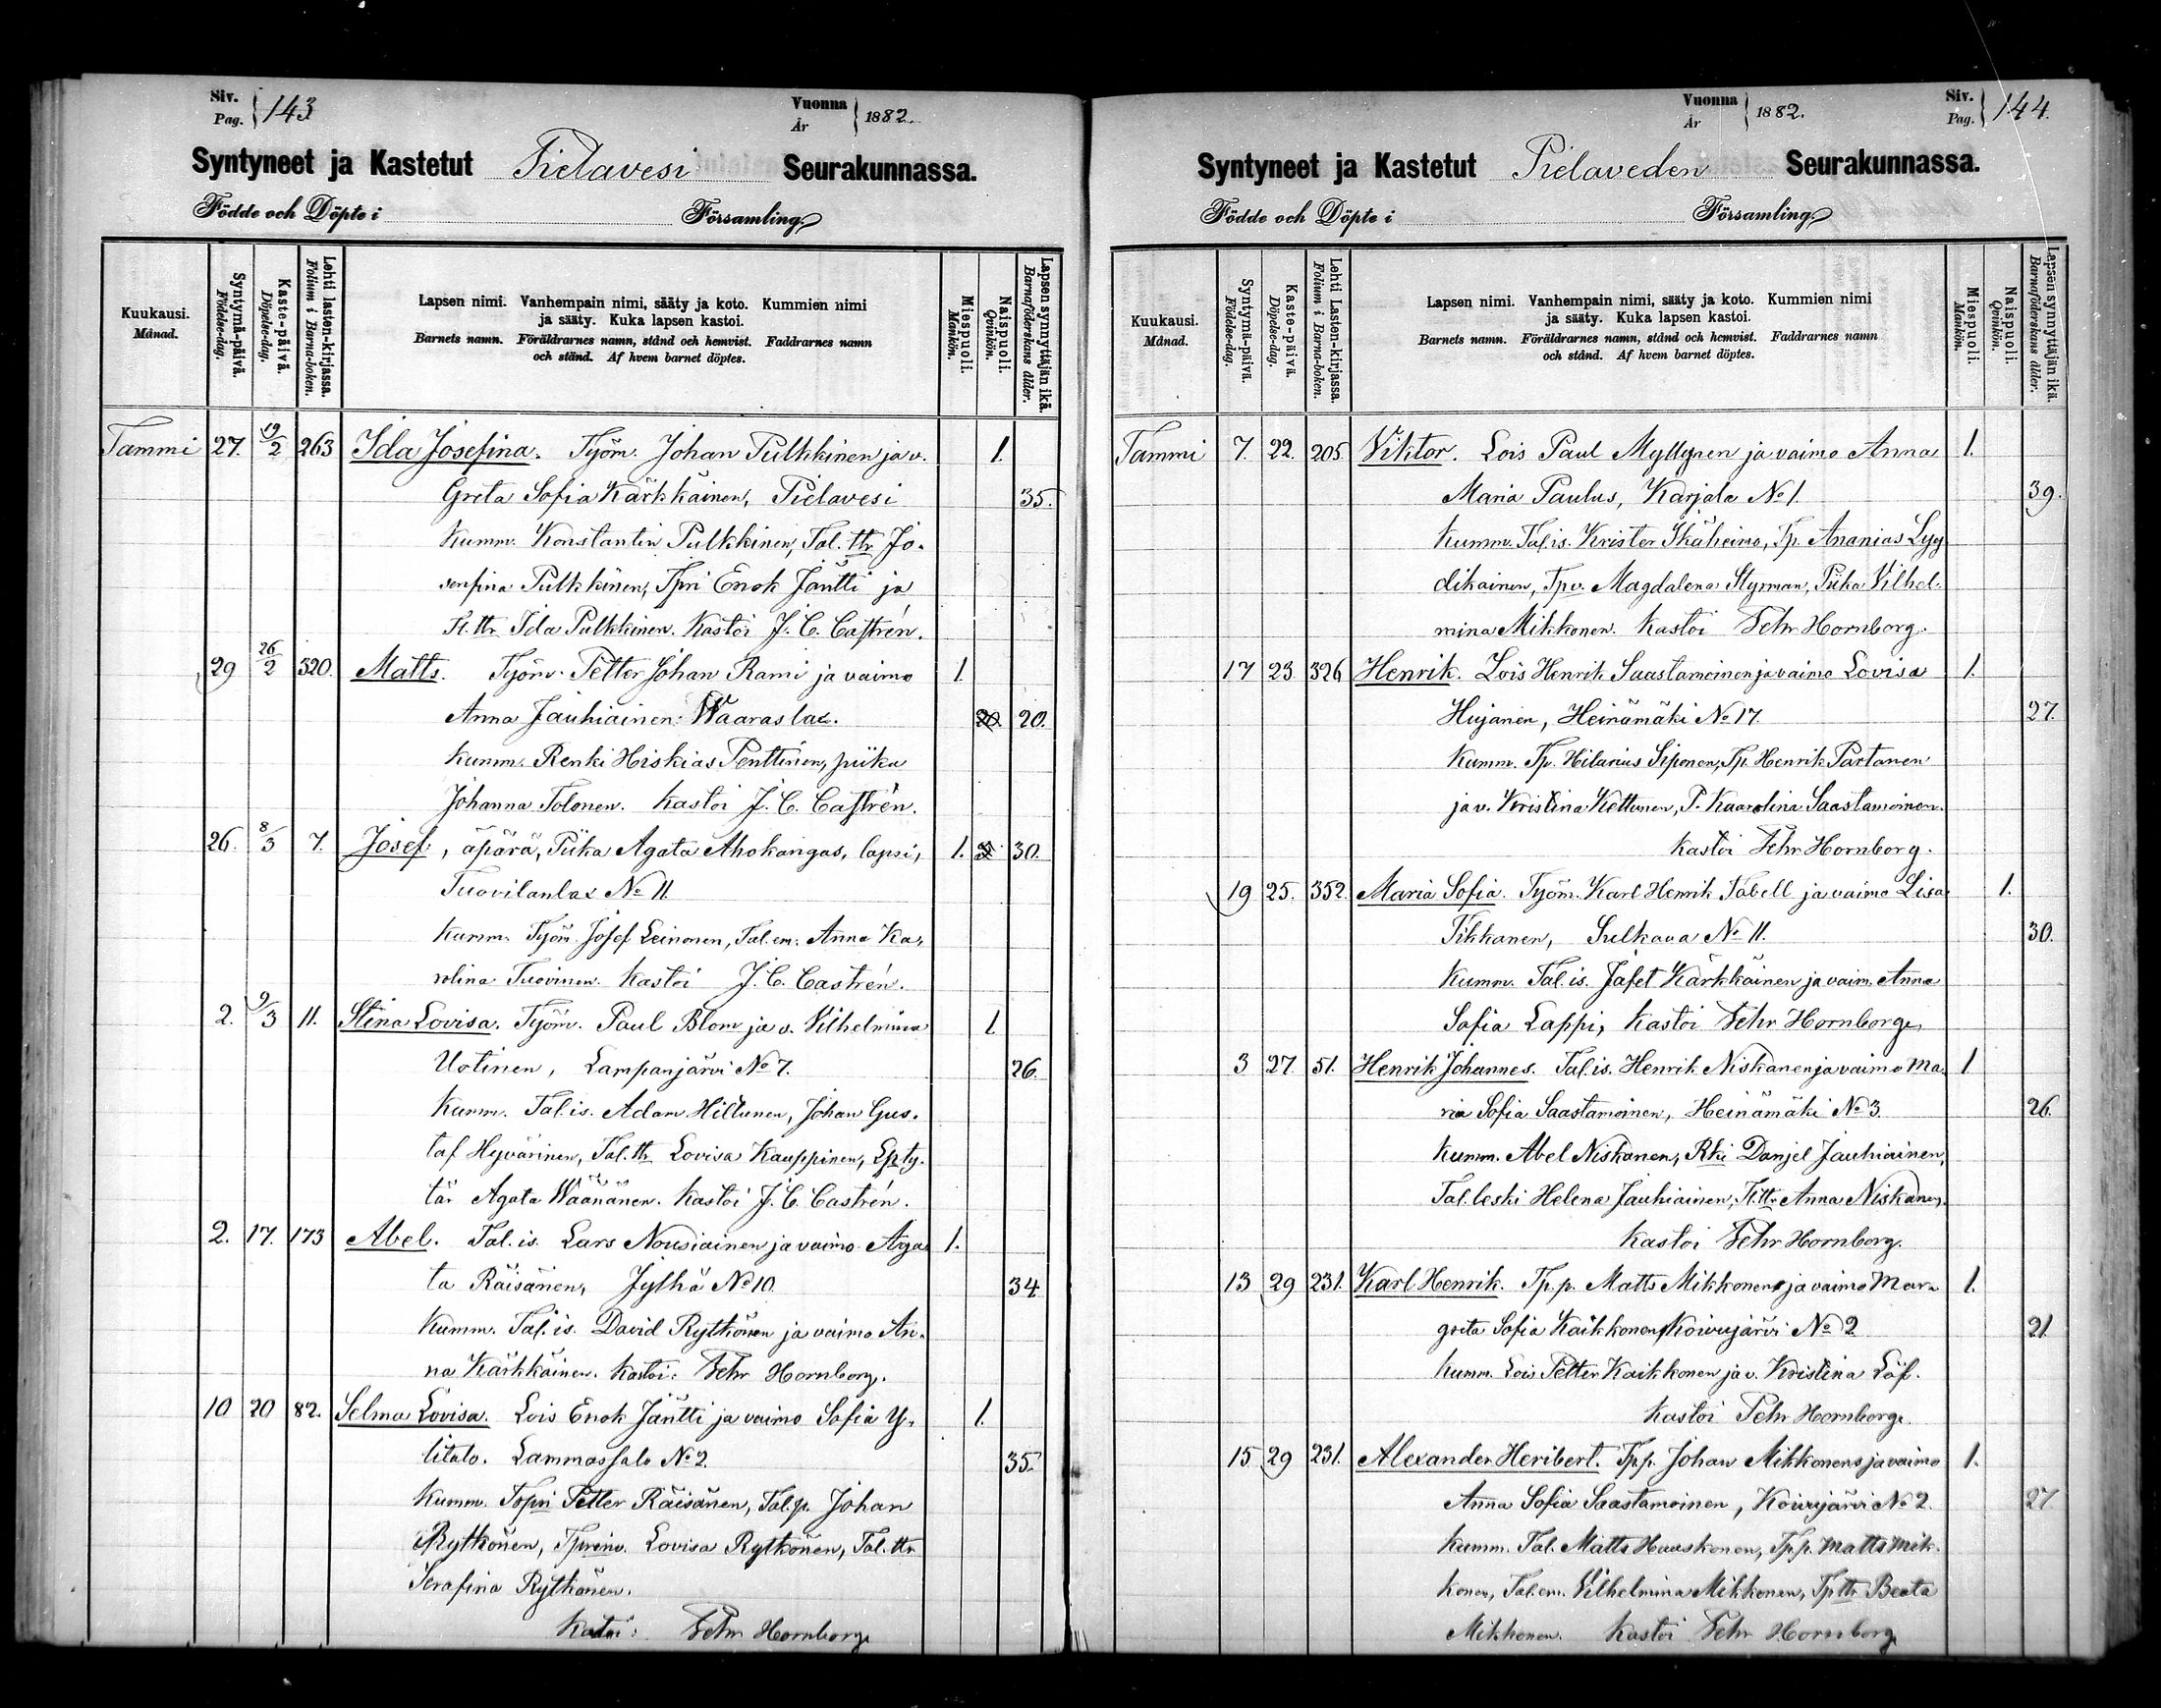 Siv. Pag. 143 Vuonna År 1882.
Syntyneet ja Kastetut Pielavesi Seurakunnassa.
Födde och Döpte i Församling
Kuukausi. Månad.
Syntymä-päivä. Födelse-dag.
Kaste-päivä. Döpelse-dag.
Lehti lasten-kirjassa. Folium i Barna-boken.
Lapsen nimi. Vanhempain nimi, sääty ja koto. Kummien nimi
ja sääty. Kuka lapsen kastoi.
Barnets namn. Föräldrarnes namn, stånd och hemvist. Faddrarnes namn
och stånd. Af hvem barnet döptes.
Miespuoli. Mankön.
Naispuoli. Qvinkön.
Lapsen synnyttäjän ikä. Barnaföderskans ålder.
Tammi 27. 19/2 263 Ida Josefina. Työm. Johan Pulkkinen ja v. 1.
Greta Sofia Kärkkäinen, Pielavesi 35.
Kumm. Konstantin Pulkkinen, Tal. ttr Jo-
senfina Pulkkinen, Tpri Enok Jäntti ja
It. ttr Ida Pulkkinen. Kastoi J. C. Castrén.
29 26/2 320. Matts. Työm. Petter Johan Rami ja vaimo 1.
Anna Jauhiainen: Waaraslax. 20. 20.
Kumm. Renki Hiskias Penttinen, piika
Johanna Tolonen. Kastoi J. C. Castrén.
26. 8/3 7. Josef, äpärä, Piika Agata Ahokangas, lapsi, 1. 30.
Tuovilanlax No 11.
Kumm. Työm. Josef Leinonen, Tal. em. Anna Ka-
rolina Tuovinen. Kastoi J. C. Castrén.
2. 9/3 11. Stina Lovisa. Työm. Paul Blom ja v. Vilhelmina 1.
Uotinen, Lampanjärvi No 7. 26.
Kumm. Tal. is. Adam Hiltunen, Johan Gus-
taf Hyvärinen, Tal. ttr Lovisa Kauppinen, Epty-
tär Agata Wäänänen. Kastoi J. C. Castrén.
2. 17. 173 Abel. Tal. is. Lars Nousiainen ja vaimo Aga- 1.
ta Räisänen, Jylhä No 10. 34
Kumm. Tal. is. David Rytkönen ja vaimo An-
na Kärkkäinen. Kastoi: Fehr Hornborg.
10 20 82. Selma Lovisa. Lois Enok Jäntti ja vaimo Sofia Y- 1.
litalo. Lammassalo No 2. 35.
Kumm. Topri Petter Räisänen, Tal. p. Johan
Rytkönen, Tprinv. Lovisa Rytkönen, Tal. ttr
Serafina Rytkönen.
Kastoi: Fehr Hornborg
Vuonna År 1882. Siv. Pag. 144.
Syntyneet ja Kastetut Pielaveden Seurakunnassa.
Födde och Döpte i Församling
Kuukausi. Månad.
Syntymä-päivä. Födelse-dag.
Kaste-päivä. Döpelse-dag.
Lehti Lasten-kirjassa. Folium i Barna-boken.
Lapsen nimi. Vanhempain nimi, sääty ja koto. Kummien nimi
ja sääty. Kuka lapsen kastoi.
Barnets namn. Föräldrarnes namn, stånd och hemvist. Faddrarnes namn
och stånd. Af hvem barnet döptes.
Miespuoli. Mankön.
Naispuoli. Qvinkön.
Lapsen synnyttäjän ikä. Barnaföderskans ålder.
Tammi 7. 22. 205. Viktor. Lois Paul Myllynen ja vaimo Anna 1.
Maria Paulus, Karjala No 1. 39.
Kumm. Tal. is. Krister Ikäheimo, Tp. Ananias Lyy
dikainen, Tpv. Magdalena Styrman, Piika Vilhel-
mina Mikkonen. Kastoi Fehr Hornborg.
17 23 326 Henrik. Lois Henrik Saastamoinen ja vaimo Lovisa 1.
Hujanen, Heinämäki No 17. 27.
Kumm. Tp. Hilarius Siponen, Tp. Henrik Partanen
ja v. Kristina Kettunen, P. Kaarolina Saastamoinen.
Kastoi Fehr Hornborg.
19 25. 352. Maria Sofia. Työm. Karl Henrik Tabell ja vaimo Lisa 1.
Tikkanen, Sulkava No 11. 30.
Kumm. Tal. is. Jafet Kärkkäinen ja vaim. Anna
Sofia Lappi, Kastoi Fehr Hornborg,
3 27. 51. Henrik Johannes. Tal. is. Henrik Niskanen ja vaimo Ma- 1.
ria Sofia Saastamoinen, Heinämäki No 3. 26.
Kumm. Abel Niskanen, Rki Danjel Jauhiainen,
Tal. leski Helena Jauhiainen, It. ttr Anna Niskanen.
Kastoi Fehr Hornborg.
13 29 231. Karl Henrik. Tp. p. Matts Mikkonens ja vaimo Mar- 1.
greta Sofia Kaikkonen, Koivujärvi No 2 21.
Kumm. Lois Petter Kaikkonen ja v. Kristina Löf.
Kastoi Fehr Hornborg.
15 29 231. Alexander Heribert. Tp. p. Johan Mikkonens ja vaimo 1.
Anna Sofia Saastamoinen, Koivujärvi No 2. 27
Kumm. Tal. Matts Hauskonen, Tp. p. Matts Mik-
konen, Tal. em. Vilhelmina Mikkonen, Tp ttr Beata
Mikkonen. Kastoi Fehr Hornborg